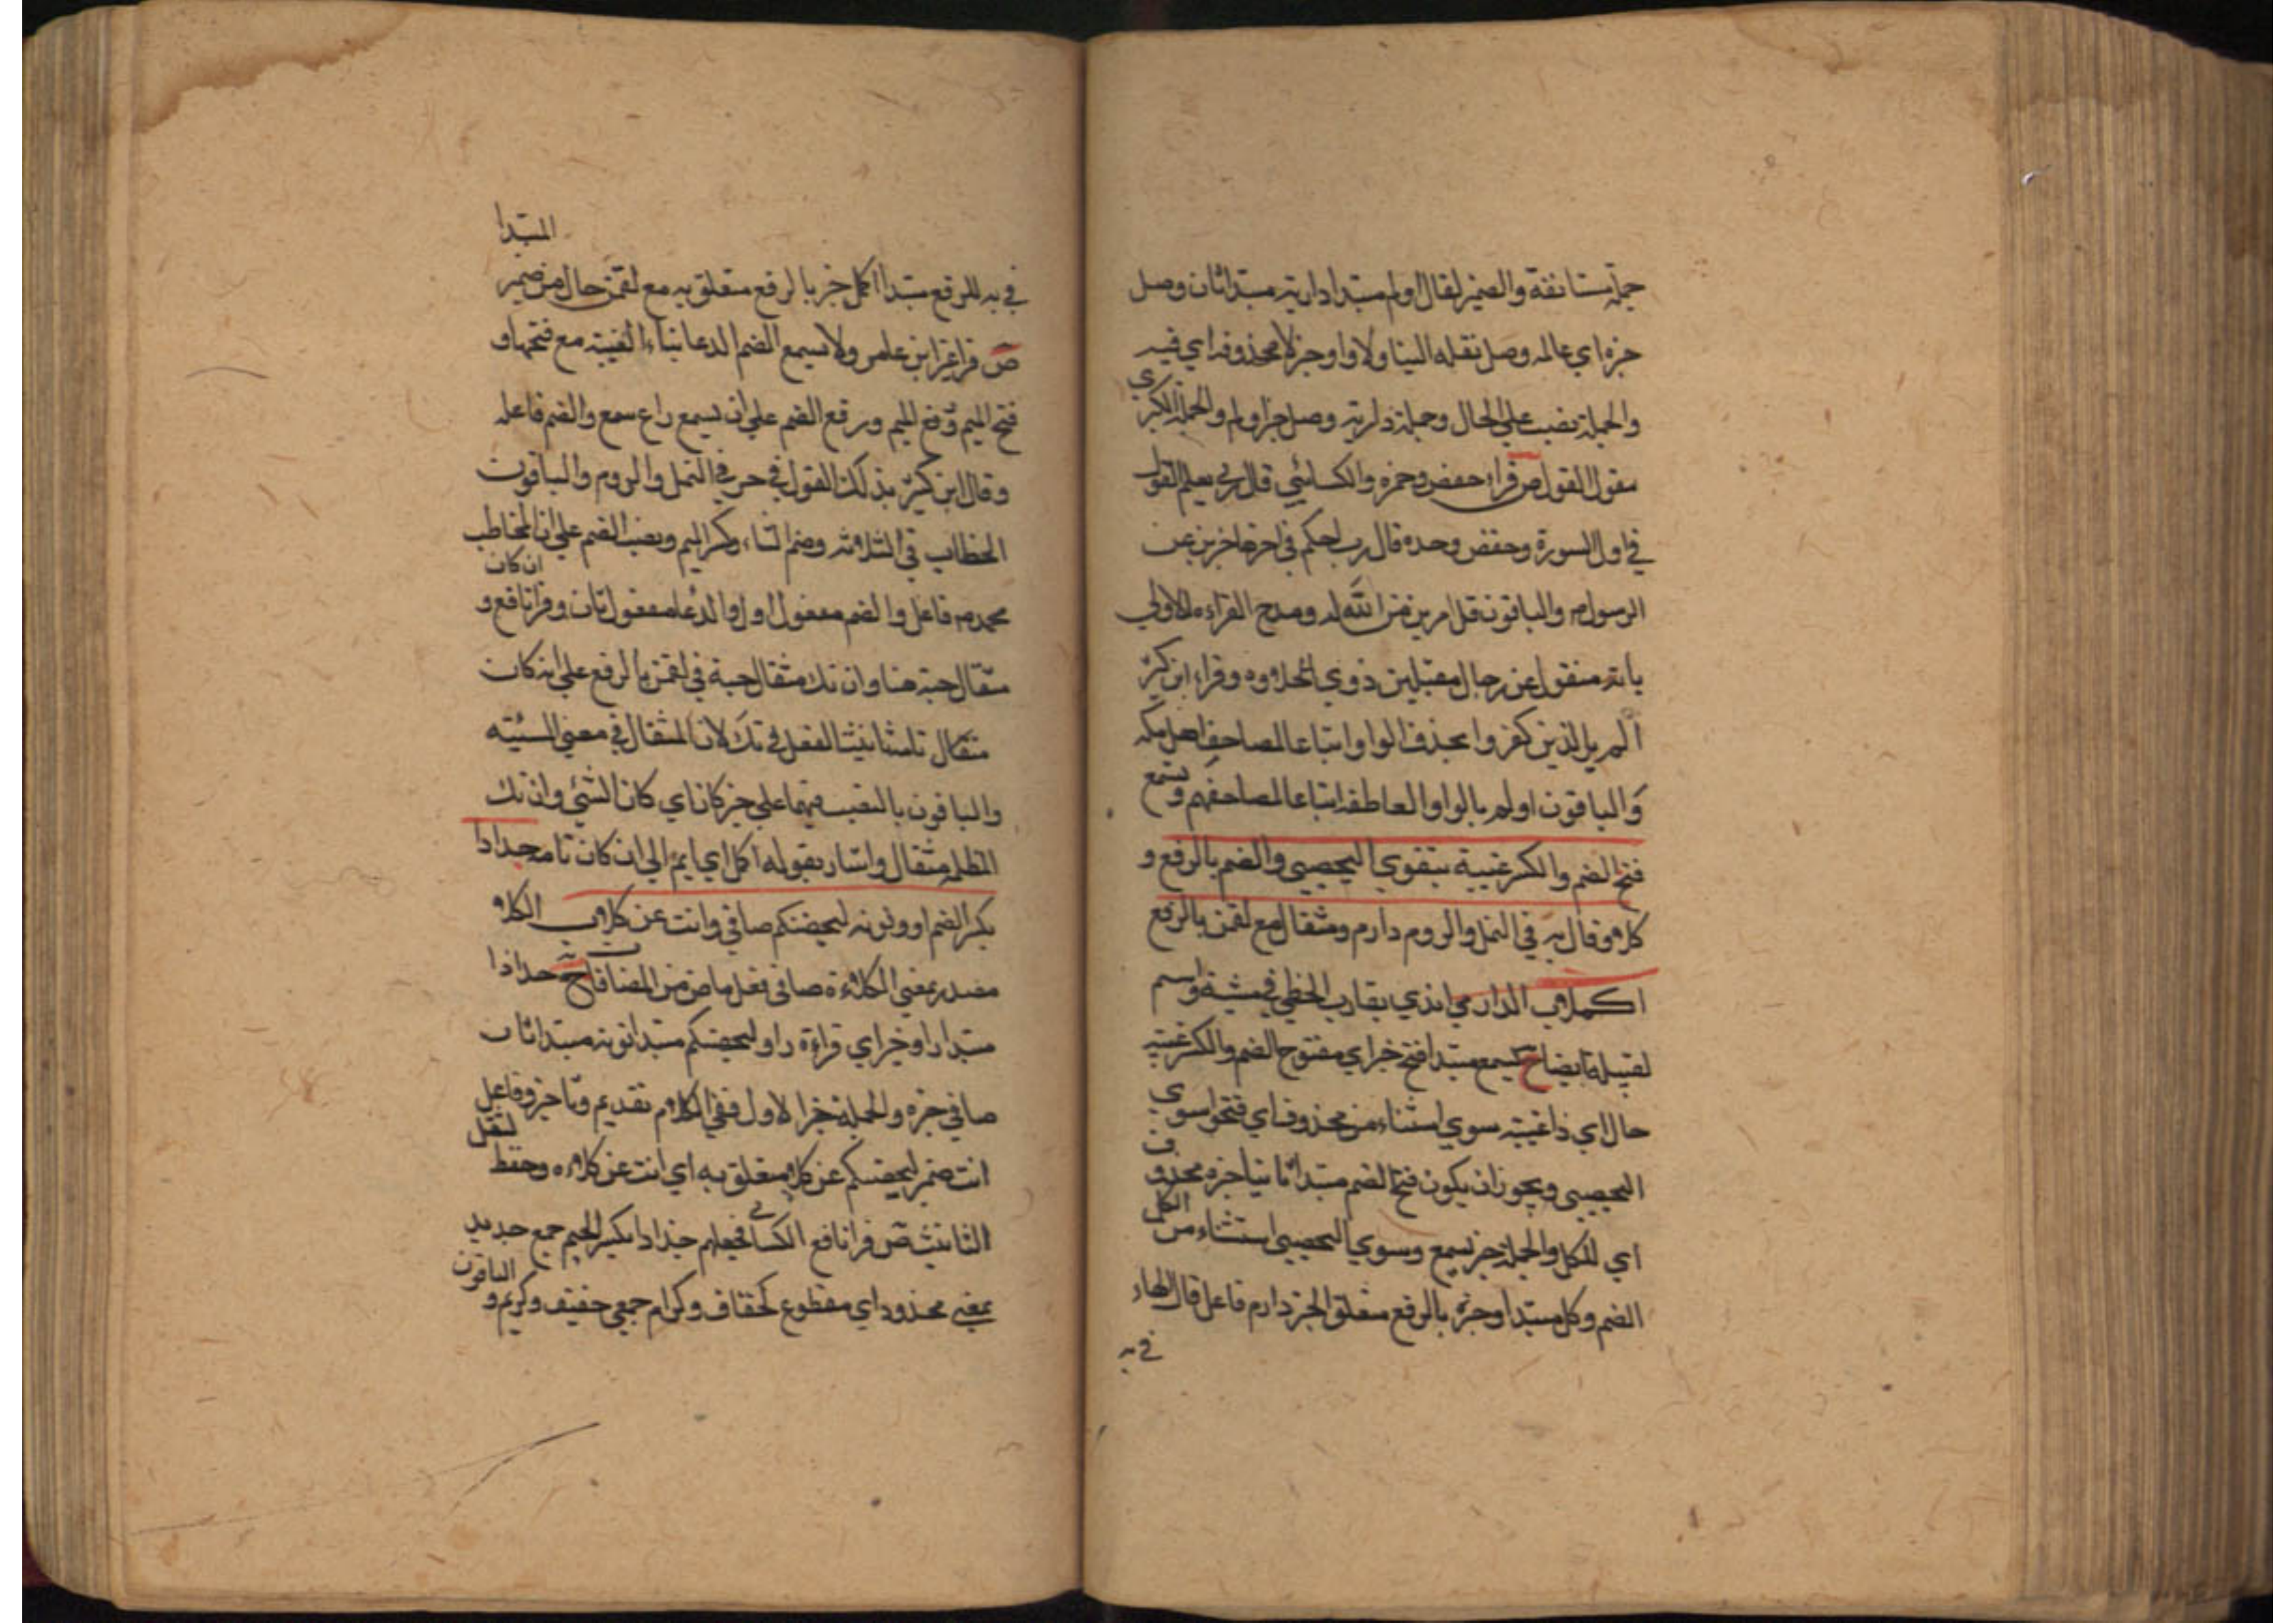 جملة مستانفة والضمير لقال اولم مبتدا داريه مبتدا ثان وصل
خبره اي عالمه وصل نقله الينا ولا واو خبر لا محذوف اي فيه
والجملة نصب علي الحال وجملة داريه وصل خبر اولم والجملة الكبري
مقول القول ص قراء حفص وحمزه والكسائي قال ربي يعلم القول
في اول السورة وحفص وحده قال رب احكم في اخرها خبرين عن
الرسول م والباقون قل امرين من الله له ومدح القراءه الاولي
بانه منقول عن رجال مقبلين ذوي الحلاوه وقراء ابن كثير
الم ير الذين كفروا بحذف الواو اتباعا لمصاحف اهل مكه
والباقون اولم بالواو العاطفه اتباعا لمصاحفهم وتسمع
فتح الضم والكسر غيبة سوي اليحصبي والضم بالرفع و
كلا وقال به في النمل والروم دارم ومثقال مع لقمن بالرفع
اكملا ب الدارمي الذي يقارب الخطي في مشيه واسم
لقبيلة ايضا ح تسمع مبتدا فتح خبر اي مفتوح الضم والكسر غيبه
حال اي ذا غيبه سوي استثناء من محذوف اي فتحوا سوي
اليحصبي ويجوز ان يكون فتح الضم مبتدا ثانيا خبره محذوف
اي للكل والجملة خبر تسمع وسوي اليحصبي استثناء من الكل
الضم وكل مبتدا وخبره بالرفع متعلق الخبر دارم فاعل قال الهاء
في به
في به للرفع مبتدا اكمل خبر بالرفع متعلق به مع لقمن حال من ضمير المبتدا
ص قرا غير ابن عامر ولا يسمع الضم الدعا بياء الغيبة مع فتحها و
فتح الميم ورفع الميم ورفع الضم علي ان يسمع راع سمع والضم فاعله
وقال ابن كثير بذلك القول في حرفي النمل والروم والباقون
الخطاب في الثلاثه وضم التاء وكسر الميم ونصب الضم علي ان المخاطب
محمد م فاعل والضم مفعول اول والدعا مفعول ثان وقرا نافع و ان كان
مثقال حبة هنا وان تك مثقال حبة في لقمن بالرفع علي ان كان
مثقال تامة تانيث الفعل في تك لان المثقال في معني السيئه
والباقون بالنصب فيهما علي خبر كان اي كان الشئ وان تك
المظلمه مثقال واشار بقوله اكمل اي ايم الي ان كان تامه جذاذا
بكسر الضم او ونونه ليحصنكم صافي وانث عن كلا ب الكلا
مصدر بمعني الكلاءة صافي فعل ماض من المصافاة ح جذاذا
مبتدا راو خبر اي قراءة راو ليحصنكم مبتدا نونه مبتدا ثان
صافي خبره والجملة خبر الاول ففي الكلام تقديم وتاخير وفاعل
انث ضمير ليحصنكم عن كلا متعلق به اي انث عن كلاءه وحفظ لنقل
التانيث ص قرا نافع الكسائي فجعلهم جذاذا بكسر الجيم جمع جذيذ
بمعني مجذوذ اي مقطوع كخفاف وكرام جمعي خفيف وكريم و الباقون